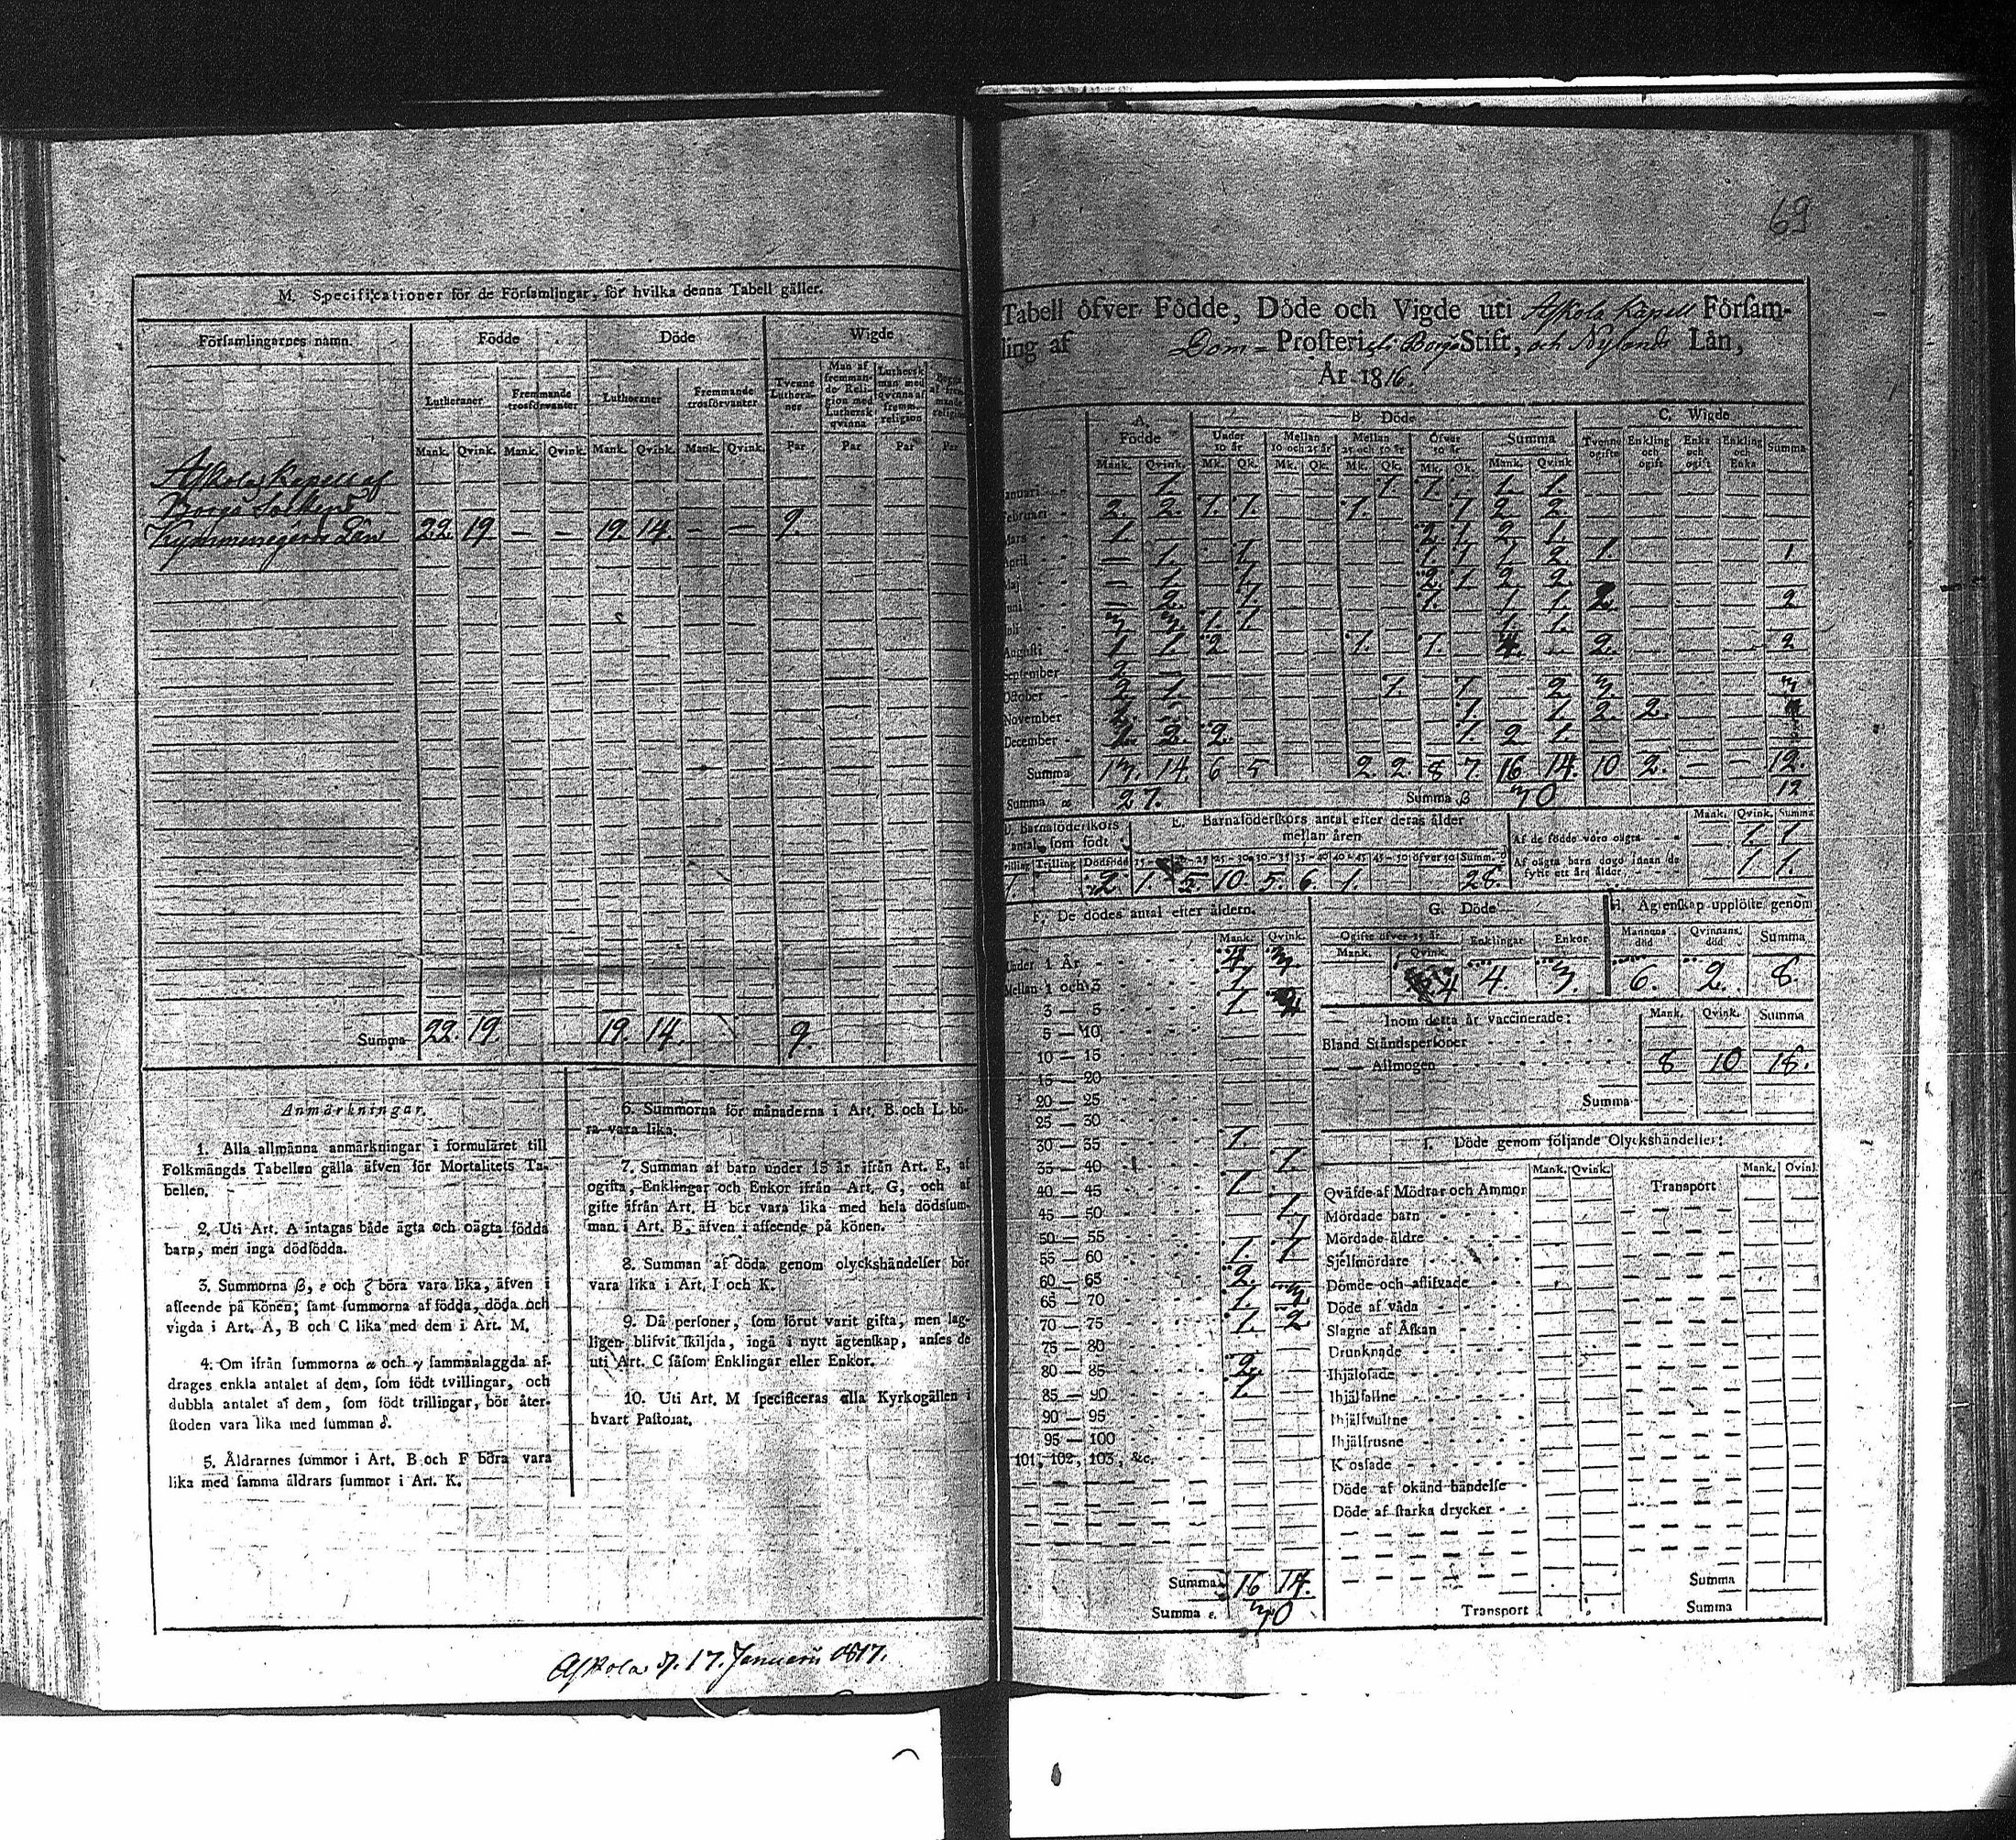 M. Specificationer för de Förſamlingar, för hvilka denna Tabell gäller.
Förſamlingarnes namn. Födde Döde Wigde
Lutheraner Fremmande trosförvanter Lutheraner Fremmande trosförvanter Tvenne Lutheraner Man af fremmande Religion med Lutherſk qvinna Lutherſk man med qvinna af fremm. religion
Mank. Qvink. Mank. Qvink. Mank. Qvink. Mank. Qvink. Par Par Par Par
Aſkola Kapell af
Borgå Sokn
Kymmenegårds Län 22 19 — — 19 14 — — 9.
Summa 22. 19. 19. 14. 9.
Anmärkningar.
1. Alla allmänna anmärkningar i formuläret till
Folkmängds Tabellen gälla äfven för Mortalitets Ta-
bellen.
2. Uti Art. A intagas både ägta och oägta födda
barn, men inga dödfödda.
3. Summorna β, ε och ζ böra vara lika, äfven i
afſeende på könen; ſamt ſummorna af födda, döda och
vigda i Art. A, B och C lika med dem i Art. M.
4. Om ifrån ſummorna α och γ ſammanlaggda af-
drages enkla antalet af dem, ſom födt tvillingar, och
dubbla antalet af dem, ſom födt trillingar, bör åter-
ſtoden vara lika med ſumman δ.
5. Åldrarnes ſummor i Art. B och F böra vara
lika med ſamma åldrars ſummor i Art. K.
6. Summorna för månaderna i Art. B. och L bö-
ra vara lika.
7. Summan af barn under 15 år ifrån Art. F, af
ogifta, Enklingar och Enkor ifrån Art. G, och af
gifte ifrån Art. H bör vara lika med hela dödsſum-
man i Art. B, äfven i afſeende på könen.
8. Summan af döda genom olyckshändelſer bör
vara lika i Art. I och K.
9. Då perſoner, ſom förut varit gifta, men lag-
ligen blifvit ſkiljda, ingå i nytt ägtenſkap, anſes de
uti Art. C ſåſom Enklingar eller Enkor.
10. Uti Art. M ſpecificeras alla Kyrkogällen i
hvart Paſtorat.
Aſkola d. 17. Januarii 1817.
69
Tabell öfver Födde, Döde och Vigde uti Aſkola Kapell Förſam-
ling af Dom-Proſteri i Borgå Stift, och Nylands Län,
År 1816.
A. Födde B Döde C. Wigde
Under 10 år Mellan 10 och 25 år Mellan 25 och 50 år Öfver 50 år Summa Tvenne ogifte Enkling och ogift Enka och ogift Enkling och Enka Summa
Mank. Qvink. Mk. Qk. Mk. Qk. Mk. Qk. Mk. Qk. Mank. Qvink
Januari 1. 1. 1. 1. 1.
Februari 2. 2. 1. 1. 1. 1 2 2.
Mars 1. 2 1. 2. 1.
April — 1. 1. 1. 1 1 2 1. 1
Maj — 1. 1. 2. 1 2 2.
Juni — 2. 1. 1. 1 1. 2. 2
Juli 3. 3. 1. 1 1. 1.
Auguſti 1 1. 2 1. 1. 4. 2. 2
September 2
October 2 1. 1. 1 2 3. 3
November 1 1. 2. 2.
December 2. 2. 1. 2 1.
Summa 13. 14. 6 5 2. 2. 8 7. 16 14. 10 2. — — 12.
Summa α 27. Summa β 30 12
D. Barnaföderſkors antal, ſom födt
E. Barnaföderſkors antal efter deras ålder mellan åren
Mank. Qvink. Summa
Af de födde voro oägta 1. 1
Af oägta barn dogo innan de fyllt ett års ålder 1 1.
Trilling Dödfödd 25—30 30—35 35—40 40—45 45—50 öfver 50 Summ. δ
1 2. 1. 5. 10. 5. 6. 1. 28.
F. De dödes antal efter åldern.
Mank. Qvink.
Under 1 År 4 3.
Mellan 1 och 3 1.
3 — 5 1. 2
5 — 10
10 — 15
15 — 20
20 — 25
25 — 30
30 — 35 1.
35 — 40 1.
40 — 45 1.
45 — 50 1
50 — 55 1
55 — 60 1. 1
60 — 65 2.
65 — 70 1. 3
70 — 75 1 2
75 — 80
80 — 85 2.
85 — 90 1.
90 — 95
95 — 100
101, 102, 103, &c.
Summa 16 14.
Summa ε. 30
G. Döde
Ogifte öfver 15 år. Enklingar Enkor
Mank. Qvink.
4 4. 3.
H. Ägtenſkap upplöſte genom
Mannens död Qvinnans död Summa
6. 2. 8.
Inom detta år vaccinerade: Mank. Qvink. Summa
Bland Ståndsperſoner
— — Allmogen 8 10 18.
Summa
I. Döde genom följande Olyckshändelſer:
Mank. Qvink. Mank. Qvink.
Qväfde af Mödrar och Ammor Transport
Mördade barn
Mördade äldre
Sjelfmördare
Dömde och aflifvade
Döde af våda
Slagne af Åſkan
Drunknade
Ihjälofade
Ihjälfallne
Ihjälſvultne
Ihjälfrusne
Döde af okänd händelſe
Döde af ſtarka drycker
Summa
Transport Summa